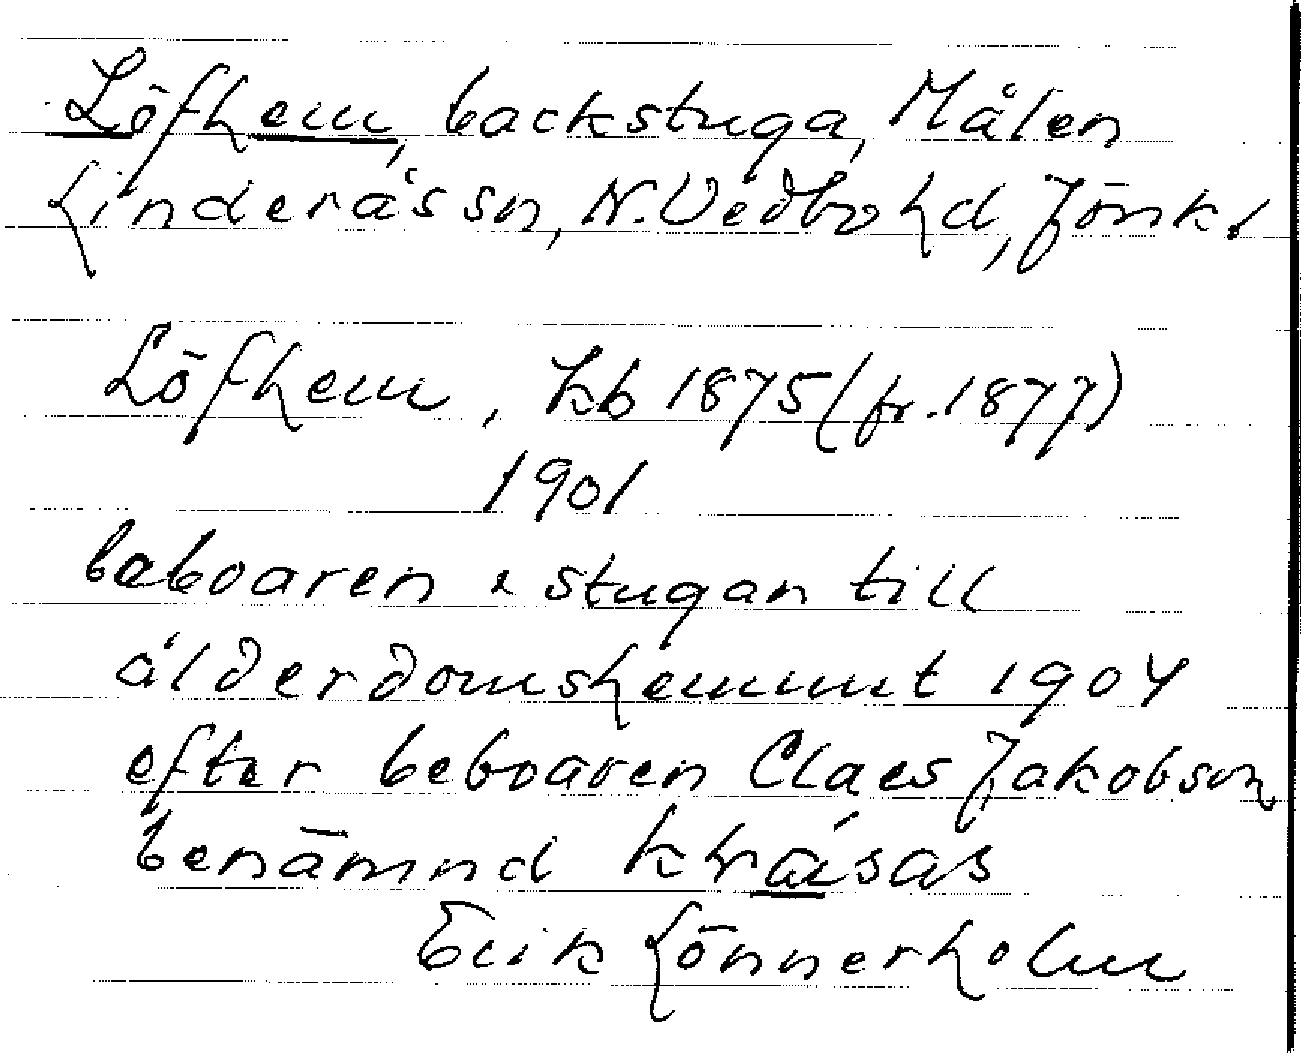 Löfhem, backstuga, Målen
Linderås sn, N. Vedbo hd, Jönk l
Löfhem, kb 1875 (fr. 1877)
1901
beboaren & stugan till
ålderdomshemmt 1904
efter beboaren Claes Jakobson
benämnd kråsas
Erik Lönnerholm